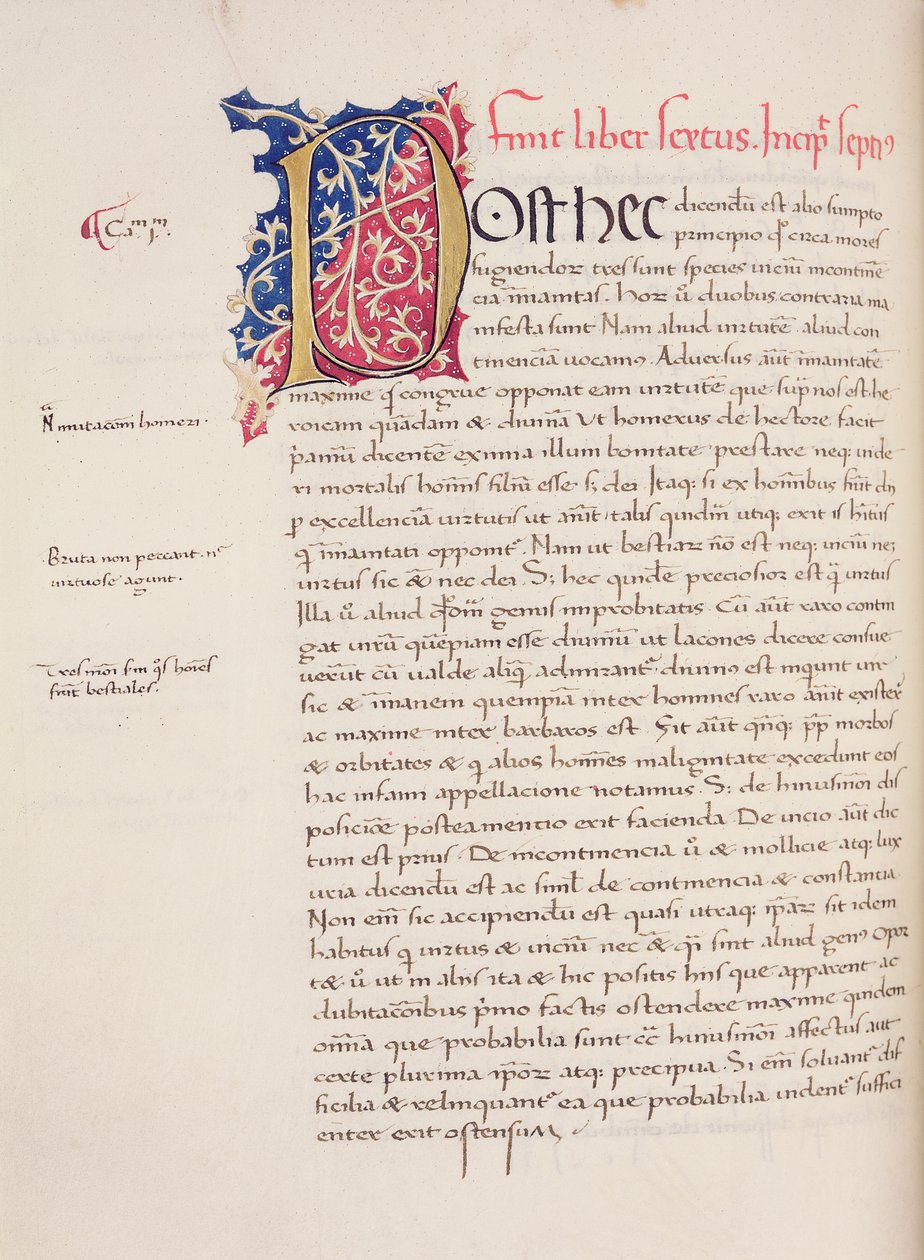 Finit liber sextus. Incip̄t septi⁹
Post hec dicendū est alio sumpto
principio qd̄ circa mores
fugiendoꝝ tres sunt species uiciū incontinē
cia īmanitas. Hoꝝ ū duobus contraria ma
nifesta sunt Nam aliud uirtutē aliud con
tinenciā uocam⁹. Aduersus aūt īmanitatē
maxime congrue opponat eam uirtutē que sup̄ nos est he
roicam quādam & diuinā Ut homerus de hectore facit
p̄amū dicentē eximia illum bonitate prestare neq; uide
ri mortalis hoīnis filiū esse s; dei Itaq; si ex hoīnibus fiūt dii
ꝑ excellenciā uirtutis ut aiūt talis quidm̄ utiq; erit is hītus
q īmanitati oppoīt᷑. Nam ut bestiaꝝ nō est neq; uiciū neq;
uirtus sic & nec dei. S; hec quidē preciosior est q̄ uirtus
Illa ū aliud qd̄dm̄ genus improbitatis. Cū aūt raro contin
gat uirū quēpiam esse diuinū ut lacones dicere consue
uerūt cū ualde aliquē admirant᷑ diuin⁹ est inquiunt uir
sic & īmanem quempiā inter homines raro aūit exister̄
ac maxime inter barbaros est. Fit aūt qn̄q; pp̄ morbos
& orbitates & q alios hoīnes malignitate excedunt eos
hac infami appellacione notamus. S; de hiiusmōi dis
posiciōe postea mencio erit facienda. De uicio aūt dic
tum est prius. De incontinencia ū & mollicie atq; lux
uria dicendū est ac siml̄ de continencia & constancia
Non eīm sic accipiendū est quasi utraq; ip̄aꝝ sit idem
habitus q uirtus & uiciū nec & q̄ sint aliud gen⁹ Opor
t& ū ut in aliis ita & hic positis hiis que apparent ac
dubitacōibus p̄mo factis ostendere maxime quidem
omīa que probabilia sunt cc̄ hiiusmōi affectus aut
certe plurima ip̄oꝝ atq; precipua. Si eīm soluant᷑ dif
ficilia & relinquant᷑ ea que probabilia uident᷑ suffici
enter erit ostensum
Cam 1m.
N mutacōm homeri.
Bruta non peccant nec
uirtuose agunt.
Tres mōi sm̄ q̄s hoīes
fiūt bestiales.